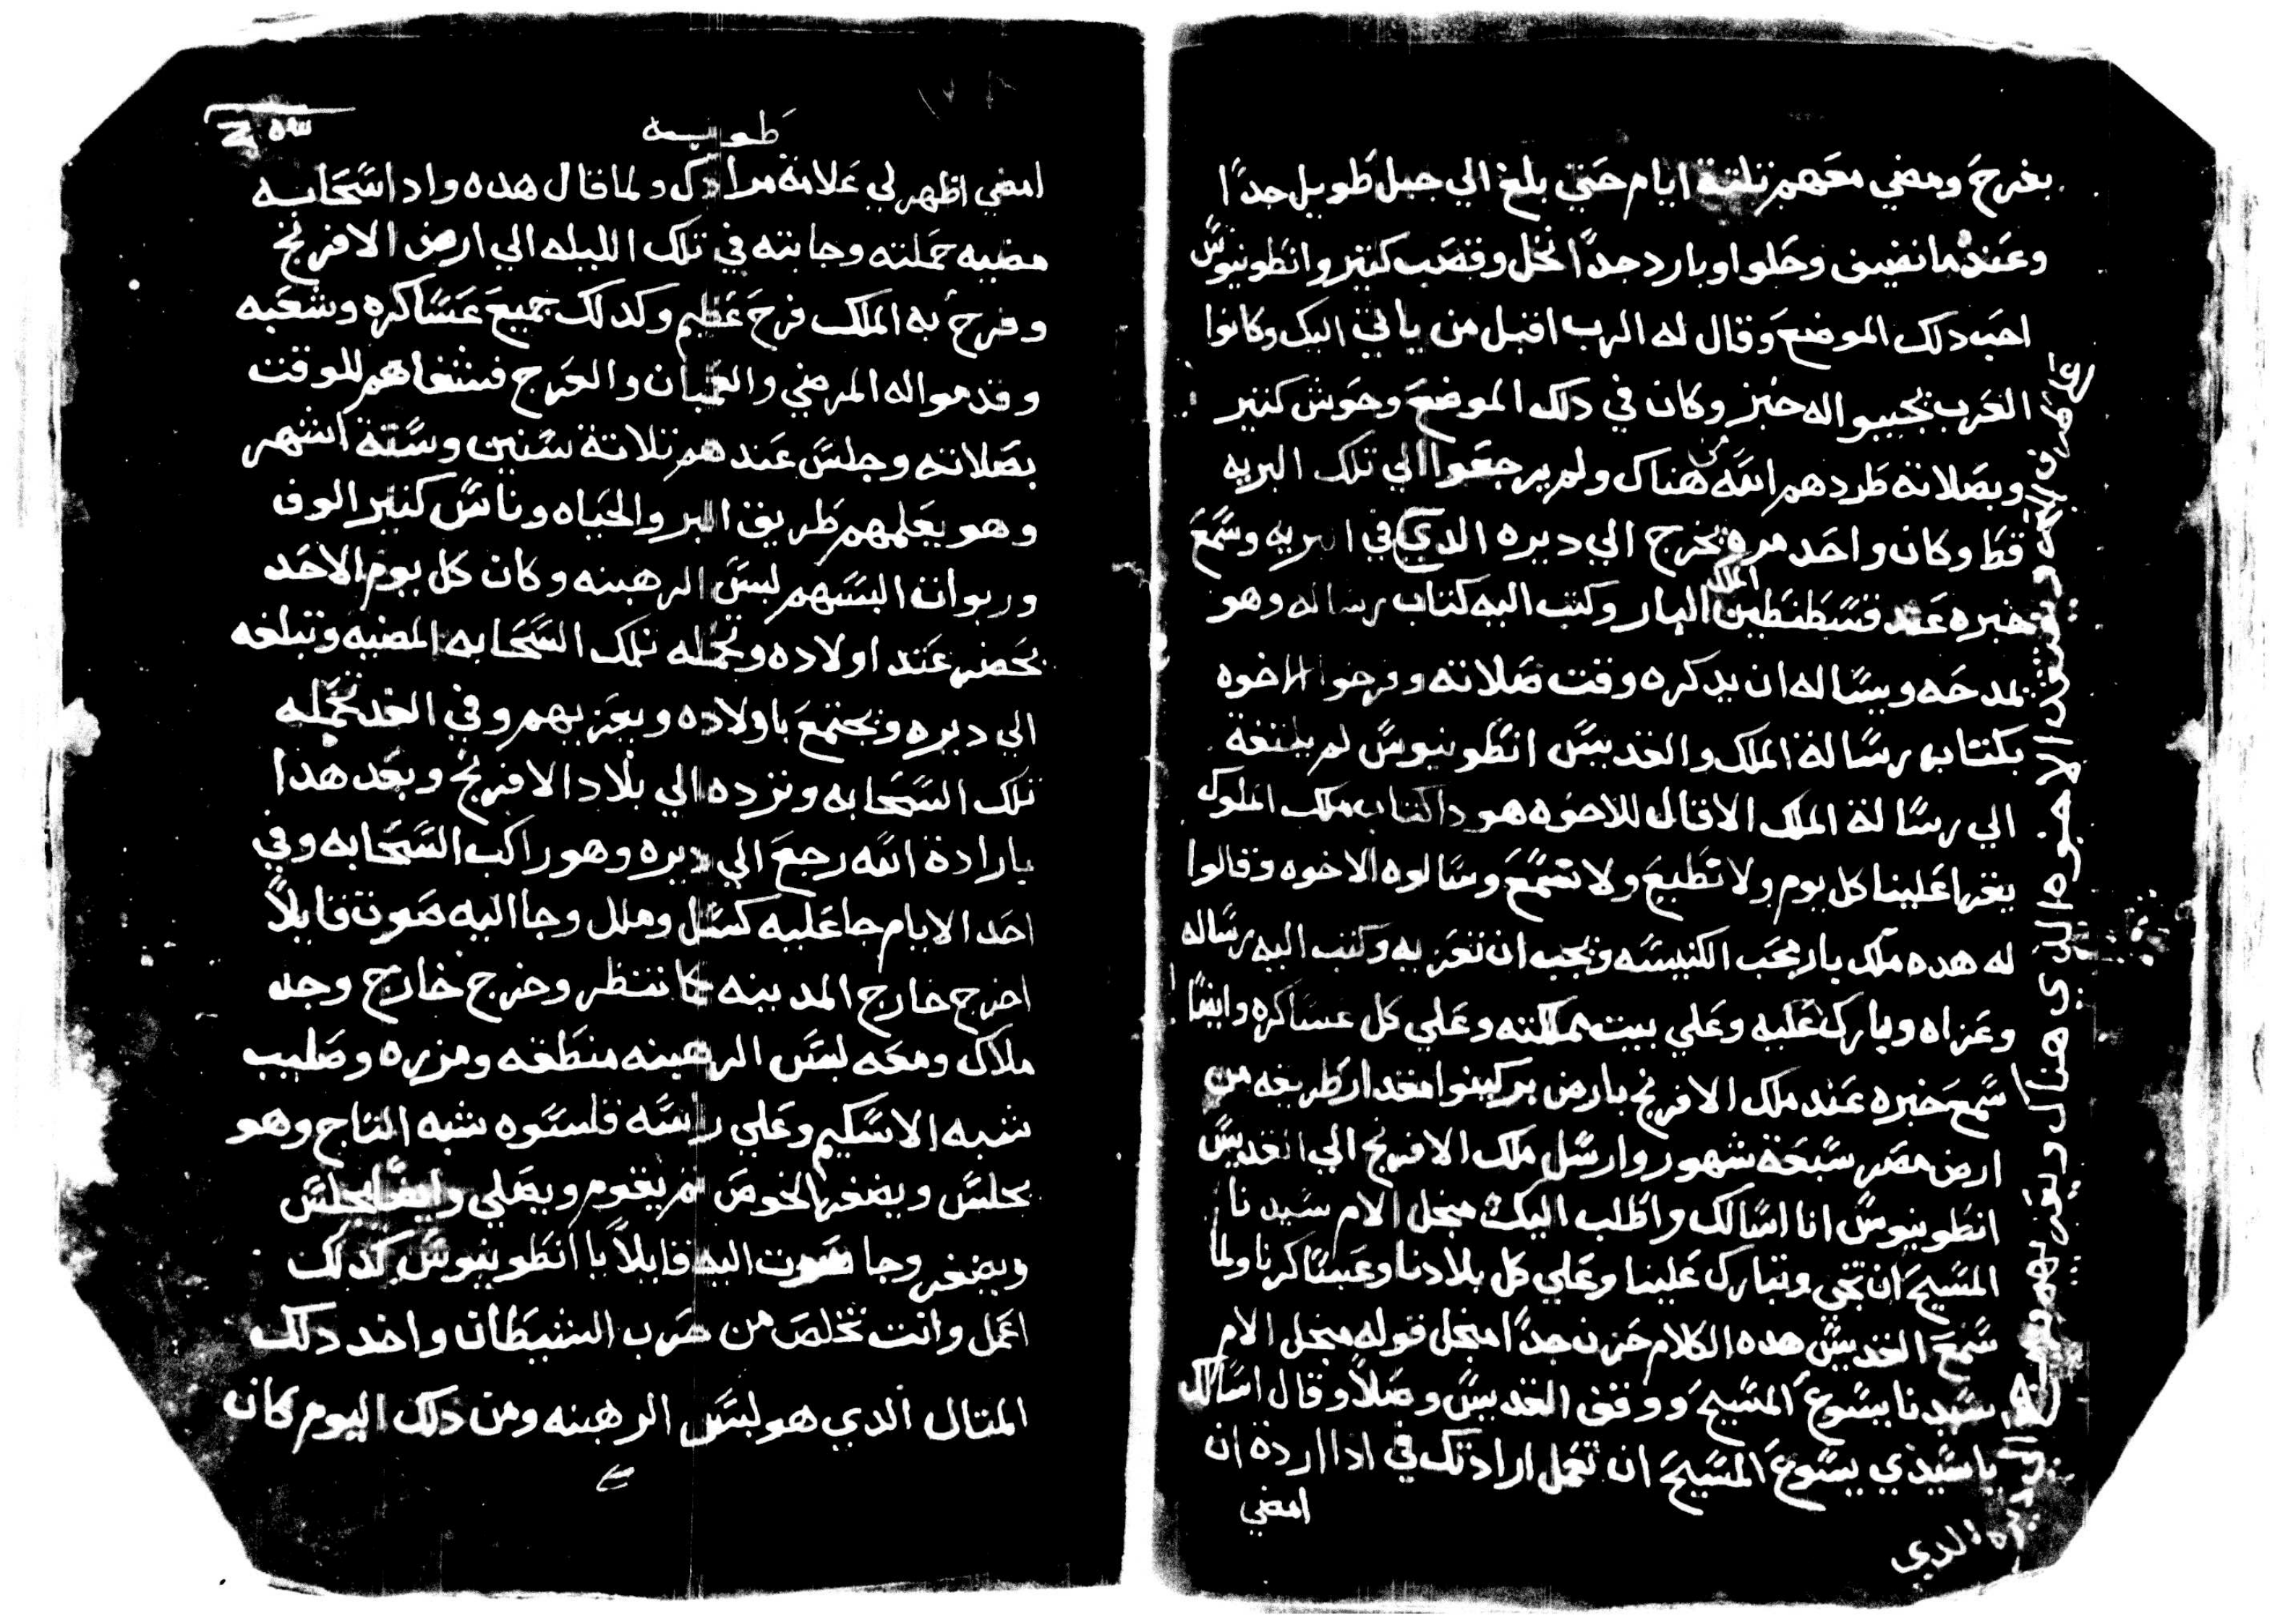 بفرح ومضي معهم تلتة ايام حتي بلغ الي جبل طويل جدًا
وعنده ما نضيف وحلوا وبارد جدًا نخل وقصب كتير وانطونيوس
احب دلك الموضع وقال له الرب اقبل من ياتي اليك وكانوا
العرب يجيبوا له خبز وكان في دلك الموضع وحوش كتير
وبصلاته طردهم الله من هناك ولم يرجعوا الي تلك البريه
قط وكان واحد مره يخرج الي ديره الدي في البريه وسمع
خبره عند قسطنطين الملك البار وكتب اليه كتاب رساله وهو
تمدحه ويساله ان يدكره وقت صلاته وفرحوا الاخوه
بكتاب رسالة الملك والقديس انطونيوس لم يلتفة
الي رسالة الملك الا قال للاخوه هودا كتاب ملك الملوك
يقرا علينا كل يوم ولا تطيع ولا تسمع وسالوه الاخوه وقالوا
له هده ملك بار محب الكنيسه ويجب ان تعزيه وكتب اليه رساله
وعزاه وبارك عليه وعلي بيت مملكته وعلي كل عساكره وايضًا
سمع خبره عند ملك الافرنج بارض بركينوا مقدار طريقه من
ارض مصر سبعة شهور وارسل ملك الافرنج الي القديس
انطونيوس انا اسالك واطلب اليك منجل الام سيدنا
المسيح ان تجي وتبارك علينا وعلي كل بلادنا وعساكرنا ولما
سمع القديس هده الكلام حزن جدًا منجل قوله منجل الام
سيدنا يسوع المسيح ووقف القديس وصلاً وقال اسالك
يا سيدي يسوع المسيح ان تعمل ارادتك في ادا اردة ان
امضي
الاخوه الدي هناك ويعزيهم
ديره الدي
طوبه
امضي اظهر لي علامة مرادك ولما قال هده وادا سحابه
مضيه حملته وجابته في تلك الليله الي ارض الافرنج
وفرح به الملك فرح عظيم وكدلك جميع عساكره وشعبه
وقدموا له المرضي والعميان والعرج فشفاهم للوقت
بصلاته وجلس عندهم تلاتة سنين وستة اشهر
وهو يعلمهم طريق البر والحياه وناس كتير الوف
وربوات البسهم لبس الرهبنه وكان كل يوم الاحد
يحضر عند اولاده وتحمله تلك السحابه المضيه وتبلغه
الي ديره ويجتمع باولاده ويعزيهم وفي الغد تحمله
تلك السحابه وترده الي بلاد الافرنج وبعد هدا
بارادة الله رجع الي ديره وهو راكب السحابه وفي
احد الايام جا عليه كسل وملل وجا اليه صوت قايلاً
اخرج خارج المدينه كا تنظر وخرج خارج وجد
ملاك ومعه لبس الرهبنه منطقه ومزره وصليب
شبه الاسكيم وعلي راسه قلسوه شبه التاج وهو
يجلس ويضفر الخوص تم يقوم ويصلي وايضًا يجلس
ويضفر وجا صوت اليه قايلاً يا انطونيوس كدلك
اعمل وانت تخلص من ضرب الشيطان واخد دلك
المتال الدي هو لبس الرهبنه ومن دلك اليوم كان